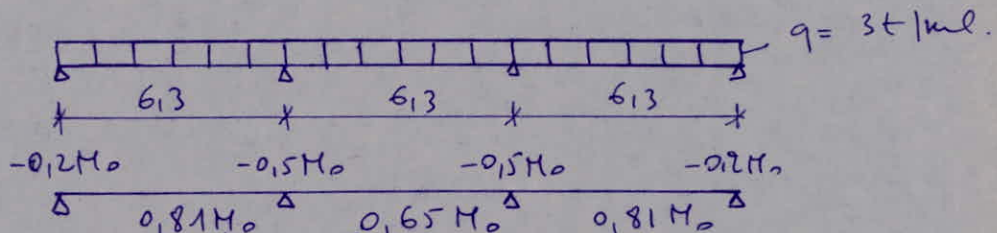 q= 3t/ml.
6,3 6,3 6,3
-0,2M₀ -0,5M₀ -0,5M₀ -0,2M₀
0,81M₀ 0,65M₀ 0,81M₀